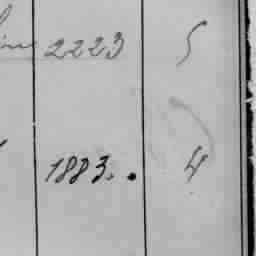 2223 5
1883. . 4